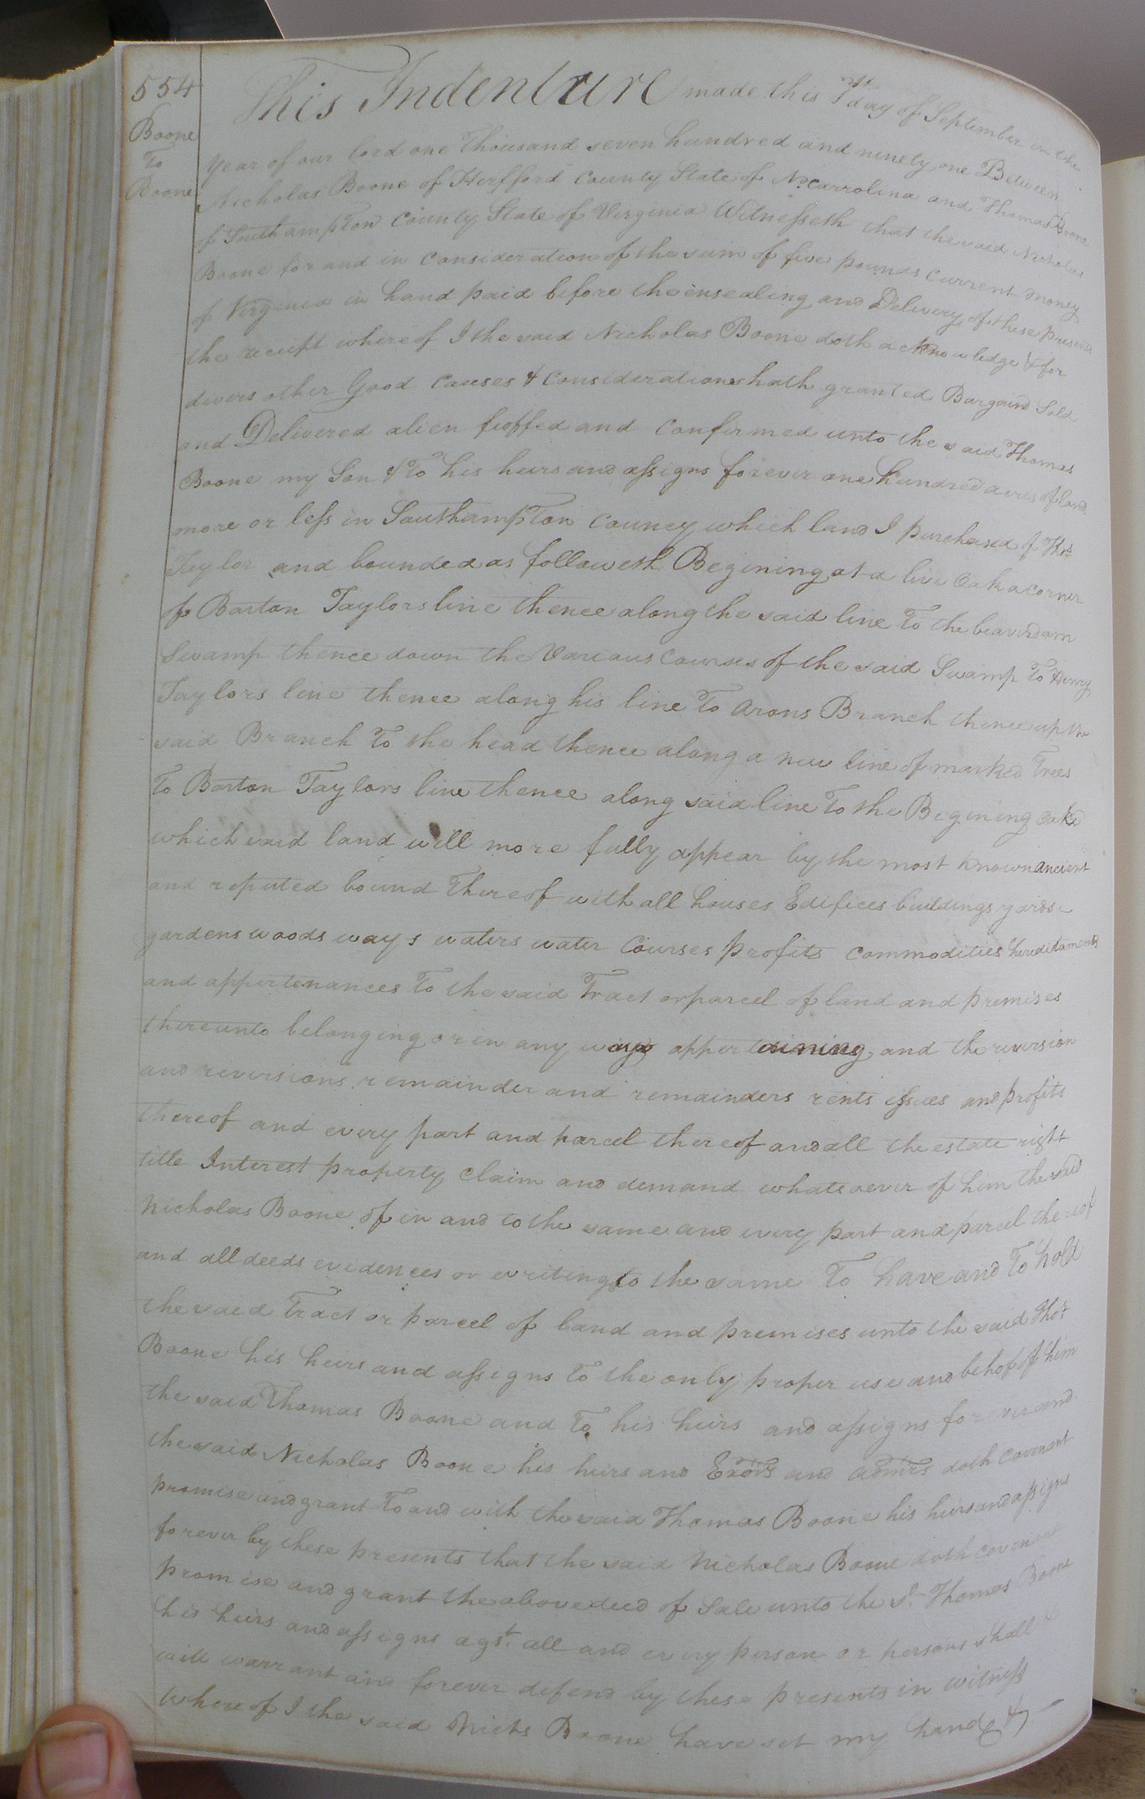 554
Boone
To
Boone
This Indenture made this day of September in the
Year of our lord one Thousand seven hundred and ninety one Between
Nicholas Boone of Hertford County State of No Carrolina and Thomas Boone
of Southampton County State of Virginia Witnesseth that the said Nicholas
Boone for and in Consideration of the sum of five pounds Current money
of Virginia in hand paid before the ensealing and Delivery of these presents
the receipt whereof I the said Nicholas Boone doth acknowledge & for
divers other Good Causes & Considerations hath granted Bargaind Sold
and Delivered alien fioffed and Confirmed unto the said Thomas
Boone my Son & To his heirs and assigns forever one hundred acres of land
more or less in Southampton County which land I purchased of Thos
Taylor and bounded as followeth Begining at a live Oak a corner
of Barton Taylors line thence along the said line To the beaverdam
Swamp thence down the Various Courses of the said Swamp To Henry
Taylors line thence along his line To Arons Branch thence up the
said Branch To the head thence along a new line of marked Trees
To Barton Taylors line thence along said line To the Begining Oake
which said land will more fully appear by the most known ancient
and reputed bound Thereof with all houses Edifices buildings yards
gardens woods ways waters water Courses profits Commodities hereditaments
and appertenances To the said Tract or parcel of land and premises
thereunto belonging or in any ways appertaining, and the reversion
and reversions remainder and remainders rents issues and profits
thereof and every part and parcel thereof and all the estate right
title Interest property Claim and demand whatsoever of him the said
Nicholas Boone of in and to the same and every part and parcel thereof
and all deeds evidences or writing to the same To have and To hold
the said Tract or parcel of land and premises unto the said Thos
Boone his heirs and assigns To the only proper use and behof of him
the said Thomas Boone and To his heirs and assigns forever and
the said Nicholas Boone his heirs and Exors and admrs doth Covenant
promise and grant To and with the said Thomas Boone his heirs and assigns
forever by these presents that the said Nicholas Boone doth covenant
promise and grant the above deed of Sale unto the sd Thomas Boone
his heirs and assigns agst all and every person or persons shall &
will warrant and forever defend by these presents in witness
Whereof I the said Nichs Boone have set my hand &